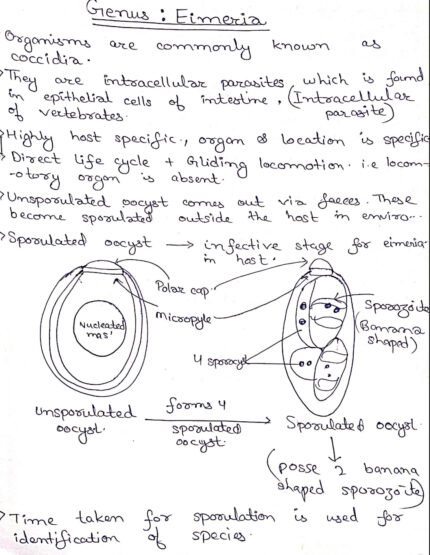 Genus : Eimeria
Organisms are commonly known as
coccidia.
They are intracellular parasites, which is found
in epithelial cells of intestine, (Intracellular
of vertebrates. parasite)
Highly host specific, organ & location is specific
Direct life cycle + Gliding locomotion. i.e locom-
-otory organ is absent.
Unsporulated oocyst comes out via faeces. These
become sporulated outside the host in enviro--
Sporulated oocyst → infective stage for eimeria
in host.
Polar cap
micropyle
Nucleated
mas'
Sporozoite
(Banana
shaped)
4 sporocyst
unsporulated
oocyst.
forms 4
sporulated
oocyst.
Sporulated oocyst.
(posse 2 banana
shaped sporozoite)
Time taken for sporulation is used for
identification of species.